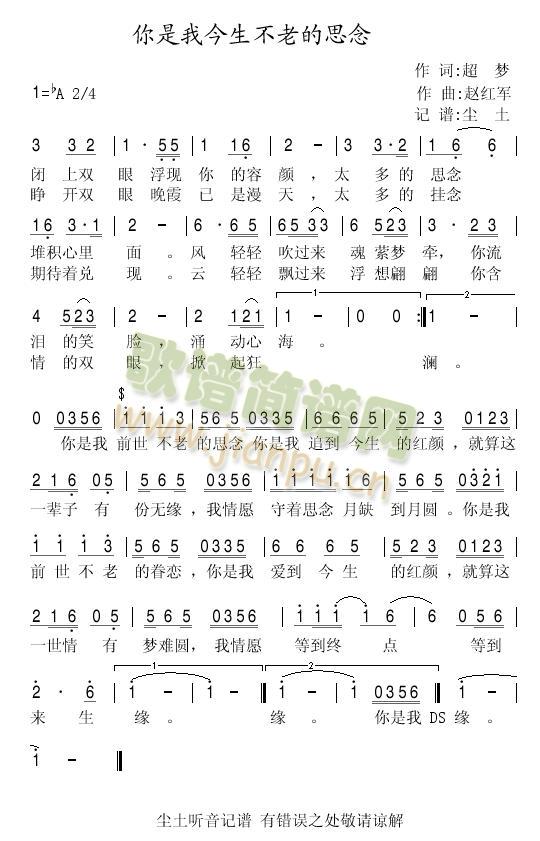 你是我今生不老的思念
作 词:超 梦
1=♭A 2/4
作 曲:赵红军
记 谱:尘 土
3 3 2 | 1 · 5 5 | 1 1 6 | 2 - | 3 3 · 2 | 1 6 6 |
闭 上双 眼 浮现 你 的容 颜 , 太 多的 思念
睁 开双 眼 晚霞 已 是漫 天 , 太 多的 挂念
1 6 3 · 1 | 2 - | 6 · 6 5 | 6 5 3 3 | 6 5 2 3 | 3 · 2 3 |
堆积心里 面 。 风 轻轻 吹过来 魂 萦梦 牵, 你流
期待着兑 现 。 云 轻轻 飘过来 浮 想翩 翩 你含
1 2
4 5 2 3 | 2 - | 2 1 2 1 | 1 - | 0 0 :‖ 2 -
泪 的笑 脸 , 涌 动心 海 。
情 的双 眼 , 掀 起狂 澜 。
$
0 0 3 5 6 | 1 1 1 3 | 5 6 5 0 3 3 5 | 6 6 6 5 | 5 2 3 0 1 2 3 |
你是我 前世 不老 的思念 你是我 追到 今生 的红颜 , 就算这
2 1 6 0 5 | 5 6 5 0 3 5 6 | 1 1 1 1 6 | 5 6 5 0 3 2 1 |
一辈子 有 份无缘 , 我情愿 守着思念 月缺 到月圆 。你是我
1 1 1 3 | 5 6 5 0 3 5 6 | 6 6 6 5 | 5 2 3 0 1 2 3 |
前 世 不 老 的眷恋 , 你是我 爱到 今 生 的红颜 , 就算这
2 1 6 0 5 | 5 6 5 0 3 5 6 | 1 1 1 1 6 | 6 0 5 6 |
一世情 有 梦难圆 , 我情愿 等到终 点 等到
1 2
2 · 6 | 1 - | 1 - ‖ 1 - | 1 0 3 5 6 ‖ 1 -
来 生 缘 。 缘 。 你是我 DS 缘 。
1 - ‖
歌谱简谱网
www.jianpu.cn
尘土听音记谱 有错误之处敬请谅解